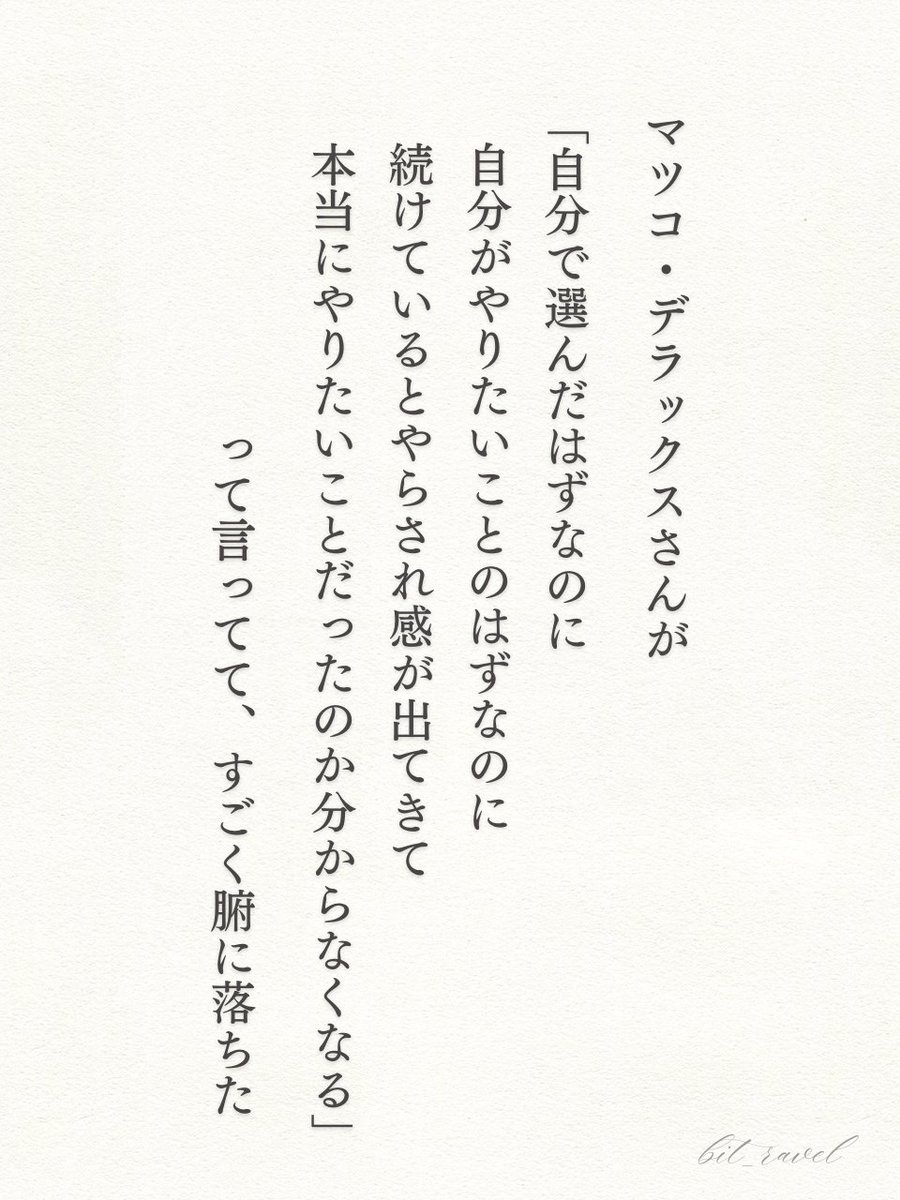 マツコ・デラックスさんが
「自分で選んだはずなのに
自分がやりたいことのはずなのに
続けているとやらされ感が出てきて
本当にやりたいことだったのか分からなくなる」
って言ってて、すごく腑に落ちた
bit_ravel